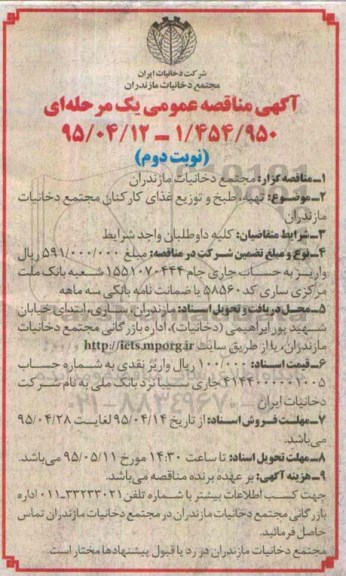 شرکت دخانیات ایران
مجتمع دخانیات مازندران
آگهی مناقصه عمومی یک مرحله‌ای
۱/۴۵۴/۹۵۰ – ۹۵/۰۴/۱۲
(نوبت دوم)
۱ـ مناقصه گزار: مجتمع دخانیات مازندران
۲ـ موضوع: تهیه، طبخ و توزیع غذای کارکنان مجتمع دخانیات
مازندران
۳ـ شرایط متقاضیان: کلیه داوطلبان واجد شرایط
۴ـ نوع و مبلغ تضمین شرکت در مناقصه: مبلغ ۵۹۱/۰۰۰/۰۰۰ ریال
واریز به حساب جاری جام ۱۵۵۱۰۷۰۴۴۴ شعبه بانک ملت
مرکزی ساری کد ۵۸۵۶۰ یا ضمانت نامه بانکی سه ماهه
۵ـ محل دریافت و تحویل اسناد: مازندران، ساری، ابتدای خیابان
شهید پورابراهیمی (دخانیات)، اداره بازرگانی مجتمع دخانیات
مازندران، یا از طریق سایت http://iets.mporg.ir
۶ـ قیمت اسناد: ۱۰۰/۰۰۰ ریال واریز نقدی به شماره حساب
جاری سیبا نزد بانک ملی به نام شرکت
دخانیات ایران
۷ـ مهلت فروش اسناد: از تاریخ ۹۵/۰۴/۱۴ لغایت ۹۵/۰۴/۲۸
می‌باشد.
۸ـ مهلت تحویل اسناد: تا ساعت ۱۴:۳۰ مورخ ۹۵/۰۵/۱۱ می‌باشد.
۹ـ هزینه آگهی: بر عهده برنده مناقصه می‌باشد.
جهت کسب اطلاعات بیشتر با شماره تلفن ۳۳۲۳۳۰۲۱-۰۱۱ اداره
بازرگانی مجتمع دخانیات مازندران در مجتمع دخانیات مازندران تماس
حاصل فرمائید.
مجتمع دخانیات مازندران در رد یا قبول پیشنهادها مختار است.